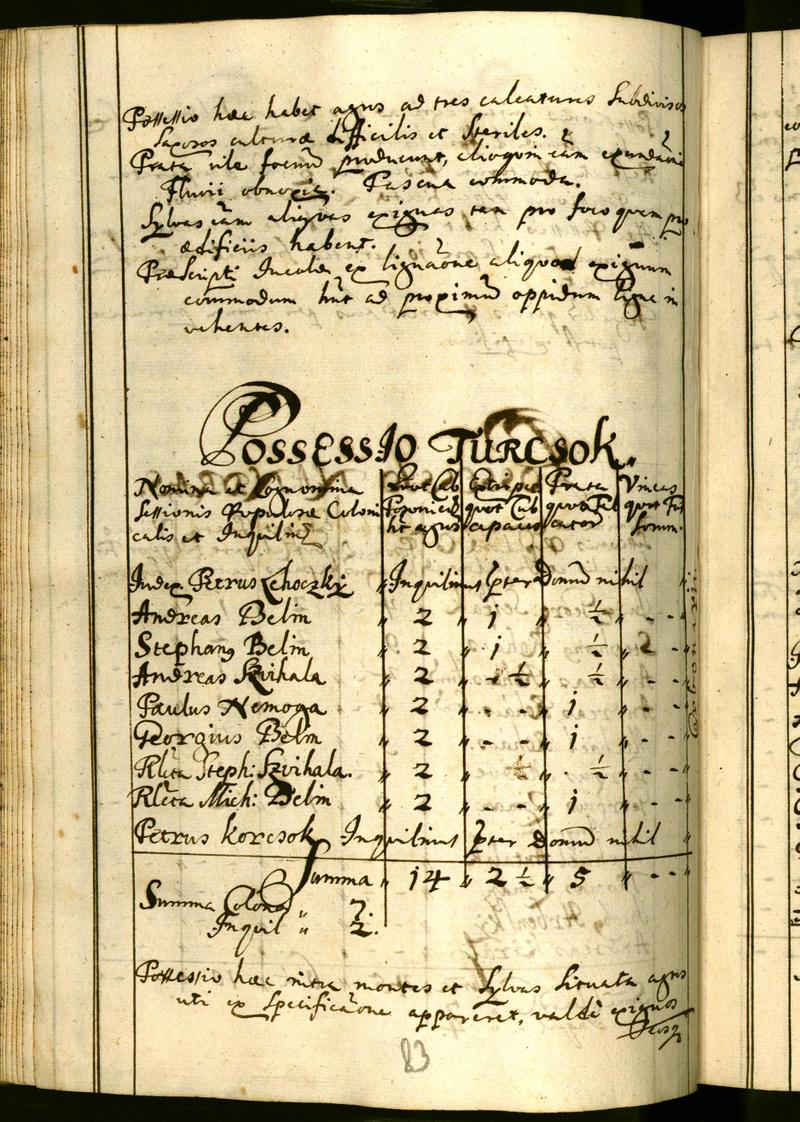 Possessio hæc habet agros ad tres calcaturas Subdivisos
Saxosos culturæ difficilis et Steriles.
Prata vile foenū producunt, alioquin eām exundāoni
Fluvii obnoxia. Pascua commoda.
Sylvas eām aliquas exiguas tam pro foco quam pro
ædificiis habent.
Præscripti Incolæ ex lignāone aliquod exiguum
commodum hñt ad proximū oppidum ligna in
vehentes.
Possessio Turcsok
Nomina et Cognomina
Sessionis Populosæ Coloni
calis et Inquilin
Quot Cub
Posonien
hñt agros
Extirpat
quot Cub
capaces
Prata
quot Fal
cator
Vineas
quot Fos
sorum
Judex Petrus Lehoczky " Inquilinus pter Domū nihil "
Andreas Belin " 2 " 1 " ½ " - - "
Stephang Belin " 2 " 1 " ½ " - - "
Andreas Szvihala " 2 " - ½ " ½ " - - "
Paulus Nemoga " 2 " - - " 1 " - - "
Georgius Belin " 2 " - - " 1 " - - "
Rlicta Steph: Szvihala. " 2 " ½ " - ½ " - - "
Rlicta Mich: Belin " 2 " - - " 1 " - - "
Petrus Korcsok Inquilinus pter Domū nihil "
Summa " 14 " 2 ½ " 5 " - - "
Summa Colonor " 7.
Inquil " 2.
Possessio hæc intra montes et Sylvas Situata agros
uti ex Specificāone appareret, valdè exiguos
83